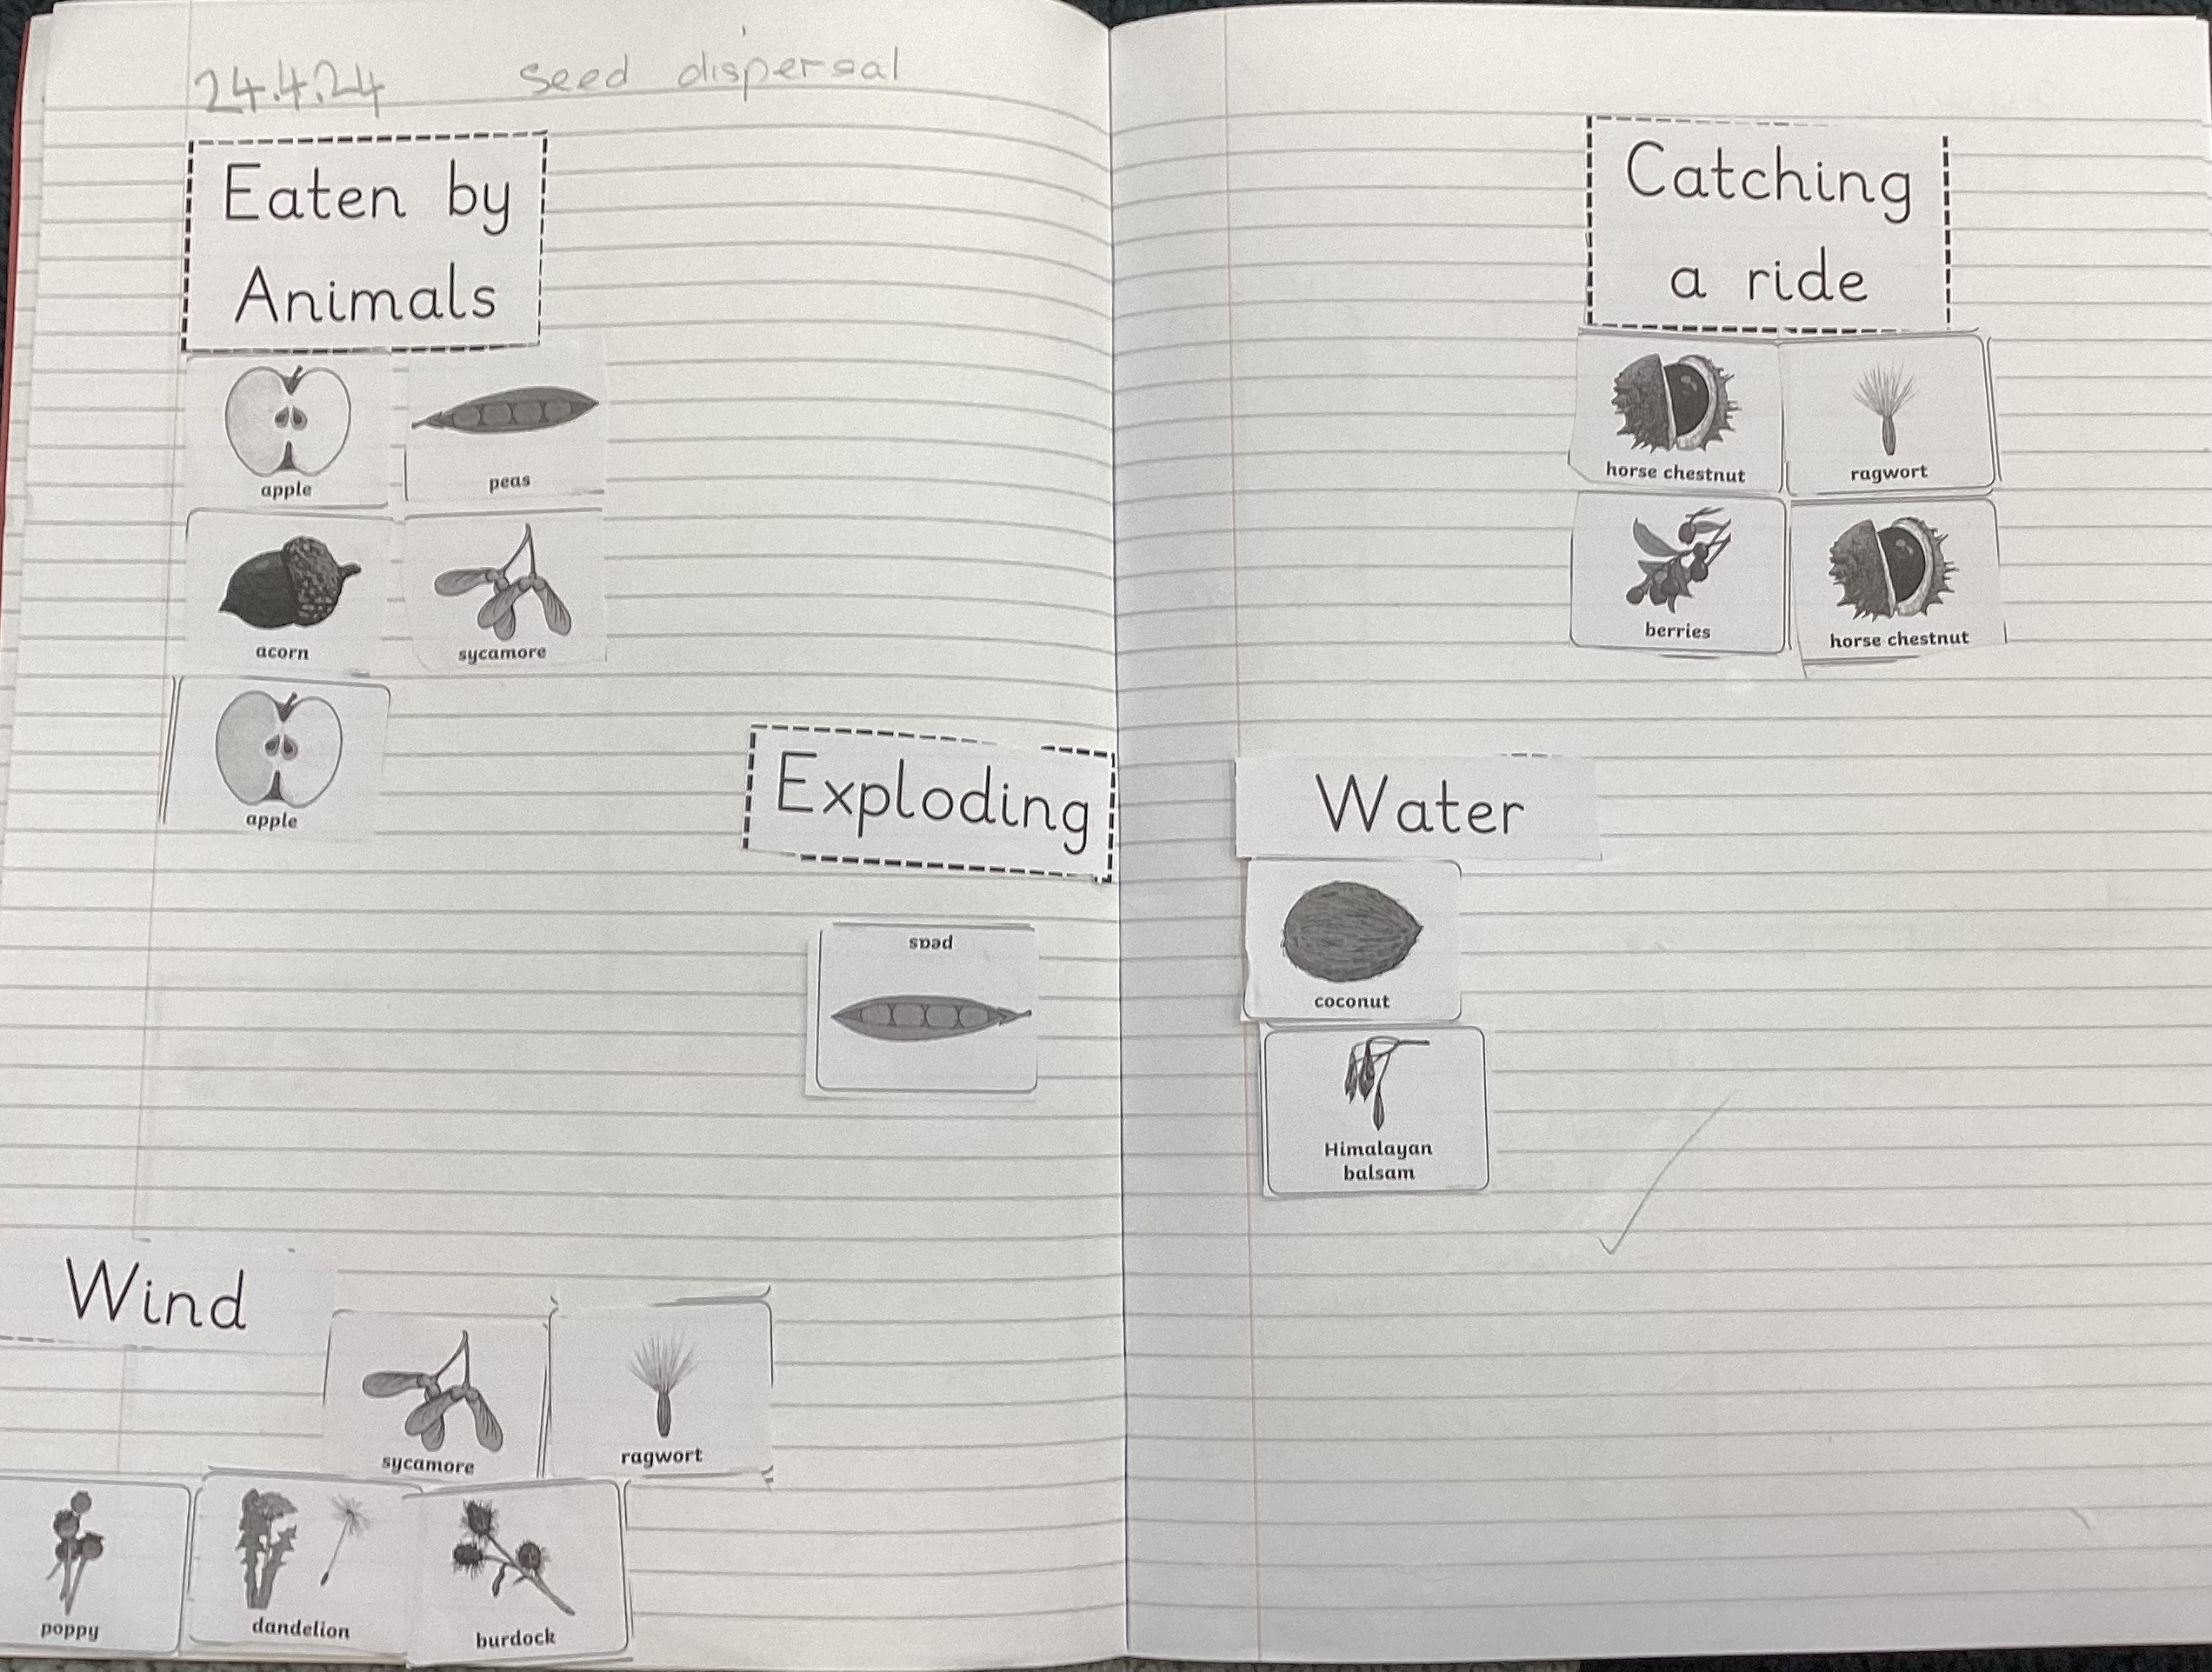 24.4.24 seed dispersal
Eaten by
Animals
apple
peas
acorn
sycamore
apple
Exploding
peas
Wind
sycamore
ragwort
poppy
dandelion
burdock
Catching
a ride
horse chestnut
ragwort
berries
horse chestnut
Water
coconut
Himalayan
balsam